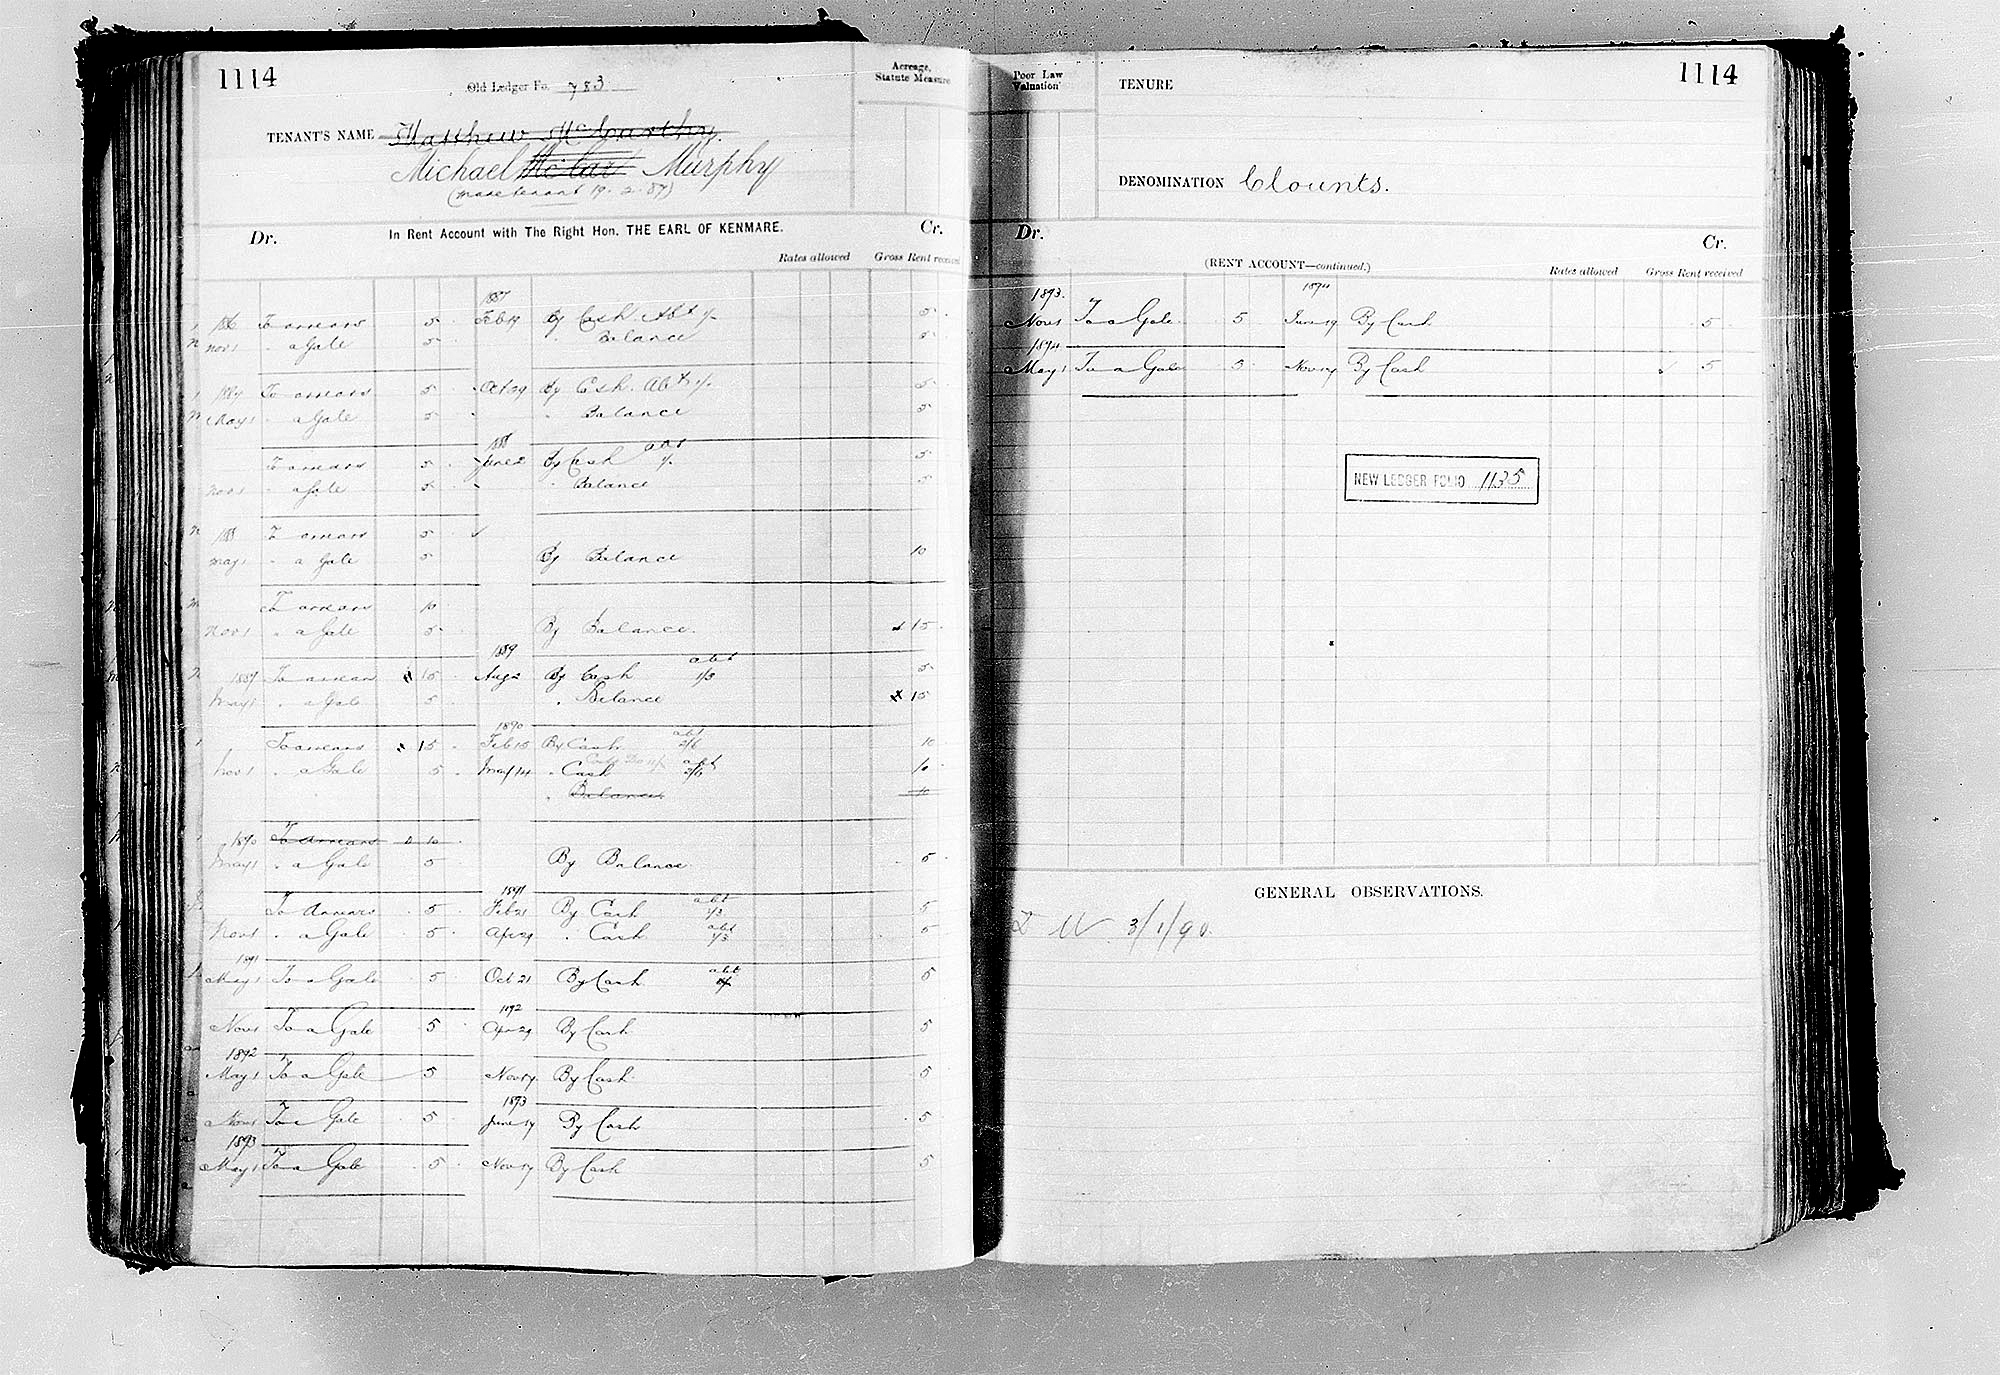 1114
Old Ledger Fo. 783
Acreage,
Statute Measure
TENANT'S NAME Matthew McCarthy.
Michael McCar Murphy
(made tenant 19.2.87)
Dr. In Rent Account with The Right Hon. THE EARL OF KENMARE. Cr.
Rates allowed Gross Rent received
1887
1886 To arrears 5 Feb 19 By Cash Abt 1/- 5
Nov 1 " a Gale 5 " Balance 5
1887 To arrears 5 Oct 29 By Cash. Abt 1/- 5
May 1 " a Gale 5 " Balance 5
1888
To arrears 5 June 2 By Cash abt 1/- 5
Nov 1 " a Gale 5 " Balance 5
1888 To arrears 5
May 1 " a Gale 5 By Balance 10
To arrears 10
Nov 1 " a Gale 5 By Balance. 15
1889
1889 To arrears 15 Aug 2 By Cash abt 1/3 5
May 1 " a Gale 5 " Balance 15
1890
To arrears 15 Feb 15 By Cash abt 2/6 10
Nov 1 " a Gale 5 May 14 " Cash abt 2/6 10
" Balance 10
1890 To arrears 10
May 1 " a Gale 5 By Balance 5
1891
To Arrears 5 Feb 21 By Cash abt 1/3 5
Nov 1 " a Gale 5 Apr 29 " Cash abt 1/3 5
1891
May 1 To a Gale 5 Oct 21 By Cash abt 5
1892
Nov 1 To a Gale 5 Apr 29 By Cash 5
1892
May 1 To a Gale 5 Nov 17 By Cash 5
1893
Nov 1 To a Gale 5 June 17 By Cash 5
1893
May 1 To a Gale 5 Nov 17 By Cash 5
Poor Law
Valuation
TENURE
1114
DENOMINATION Clounts.
Dr. Cr.
(RENT ACCOUNT—continued.)
Rates allowed Gross Rent received
1893. 1894
Nov 1 To a Gale 5 June 19 By Cash 5
1894
May 1 To a Gale 5 Nov 17 By Cash 5
NEW LEDGER FOLIO 1135
GENERAL OBSERVATIONS.
3/1/90.